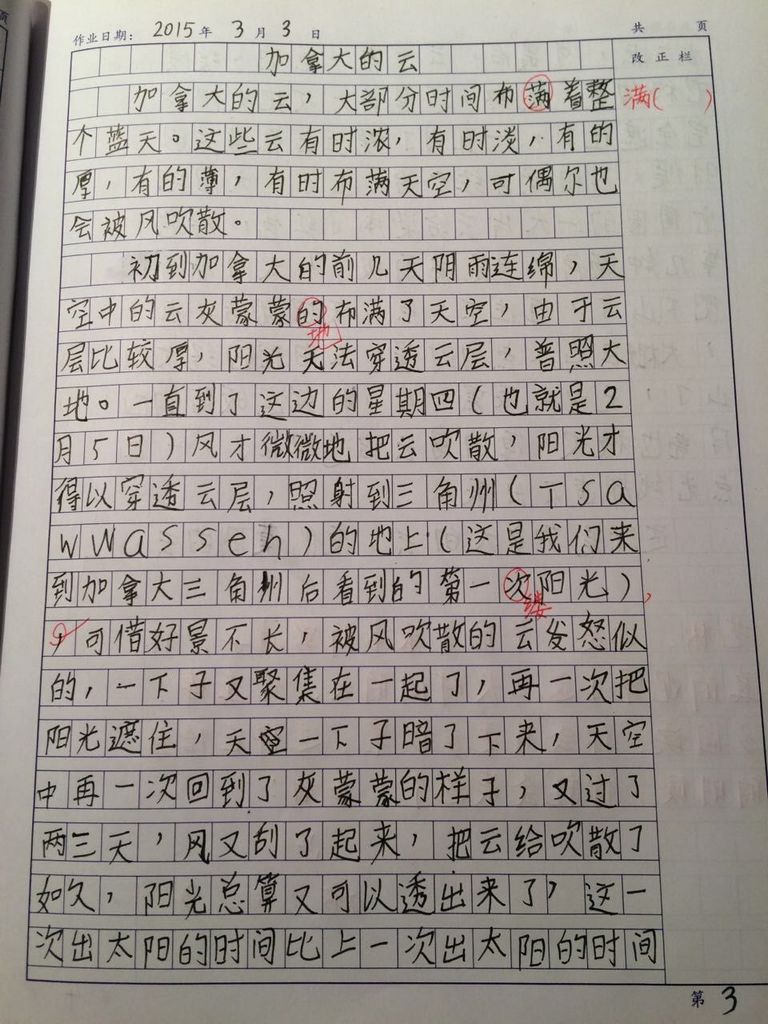 作业日期： 2015年 3月 3日 共 页
改正栏
加拿大的云
加拿大的云，大部分时间布满着整 满( )
个蓝天。这些云有时浓，有时淡，有的
厚，有的薄，有时布满天空，可偶尔也
会被风吹散。
初到加拿大的前几天阴雨连绵，天
空中的云灰蒙蒙的布满了天空，由于云
地
层比较厚，阳光无法穿透云层，普照大
地。一直到了这边的星期四(也就是2
月5日)风才微微地把云吹散，阳光才
得以穿透云层，照射到三角州(Tsa
wwassen)的地上(这是我们来
到加拿大三角州后看到的第一次阳光)，
缕
，可惜好景不长，被风吹散的云发怒似
的，一下子又聚集在一起了，再一次把
阳光遮住，天空一下子暗了下来，天空
中再一次回到了灰蒙蒙的样子，又过了
两三天，风又刮了起来，把云给吹散了
如久，阳光总算又可以透出来了，这一
次出太阳的时间比上一次出太阳的时间
第 3